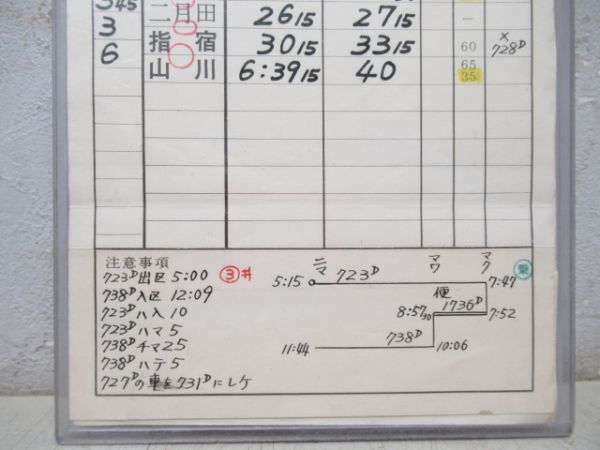 3 45 二月田 26 15 27 15 —
3 指宿 30 15 33 15 60 × 728D
6 山川 6:39 15 40 65 35
注意事項
723D出区 5:00 ③#
738D入区 12:09
723Dハ入 10
723Dハマ 5
738Dチマ 25
738Dハテ 5
727Dの車を731Dにレケ
ニマ マワ マク 乗
5:15 723D 7:47
便
8:57 30 1736D 7:52
11:44 738D 10:06